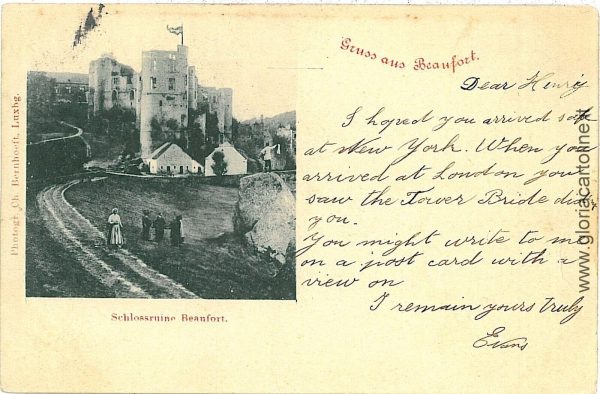 Gruss aus Beaufort.
Dear Henry
I hoped you arrived safe
at New York. When you
arrived at London you
saw the Tower Bride did
you.
You might write to me
on a post card with a
view on
I remain yours truly
Evans
Photogr. Ch. Bernhoeft, Luxbg.
Schlossruine Beaufort.
www.gloriacartoline.it